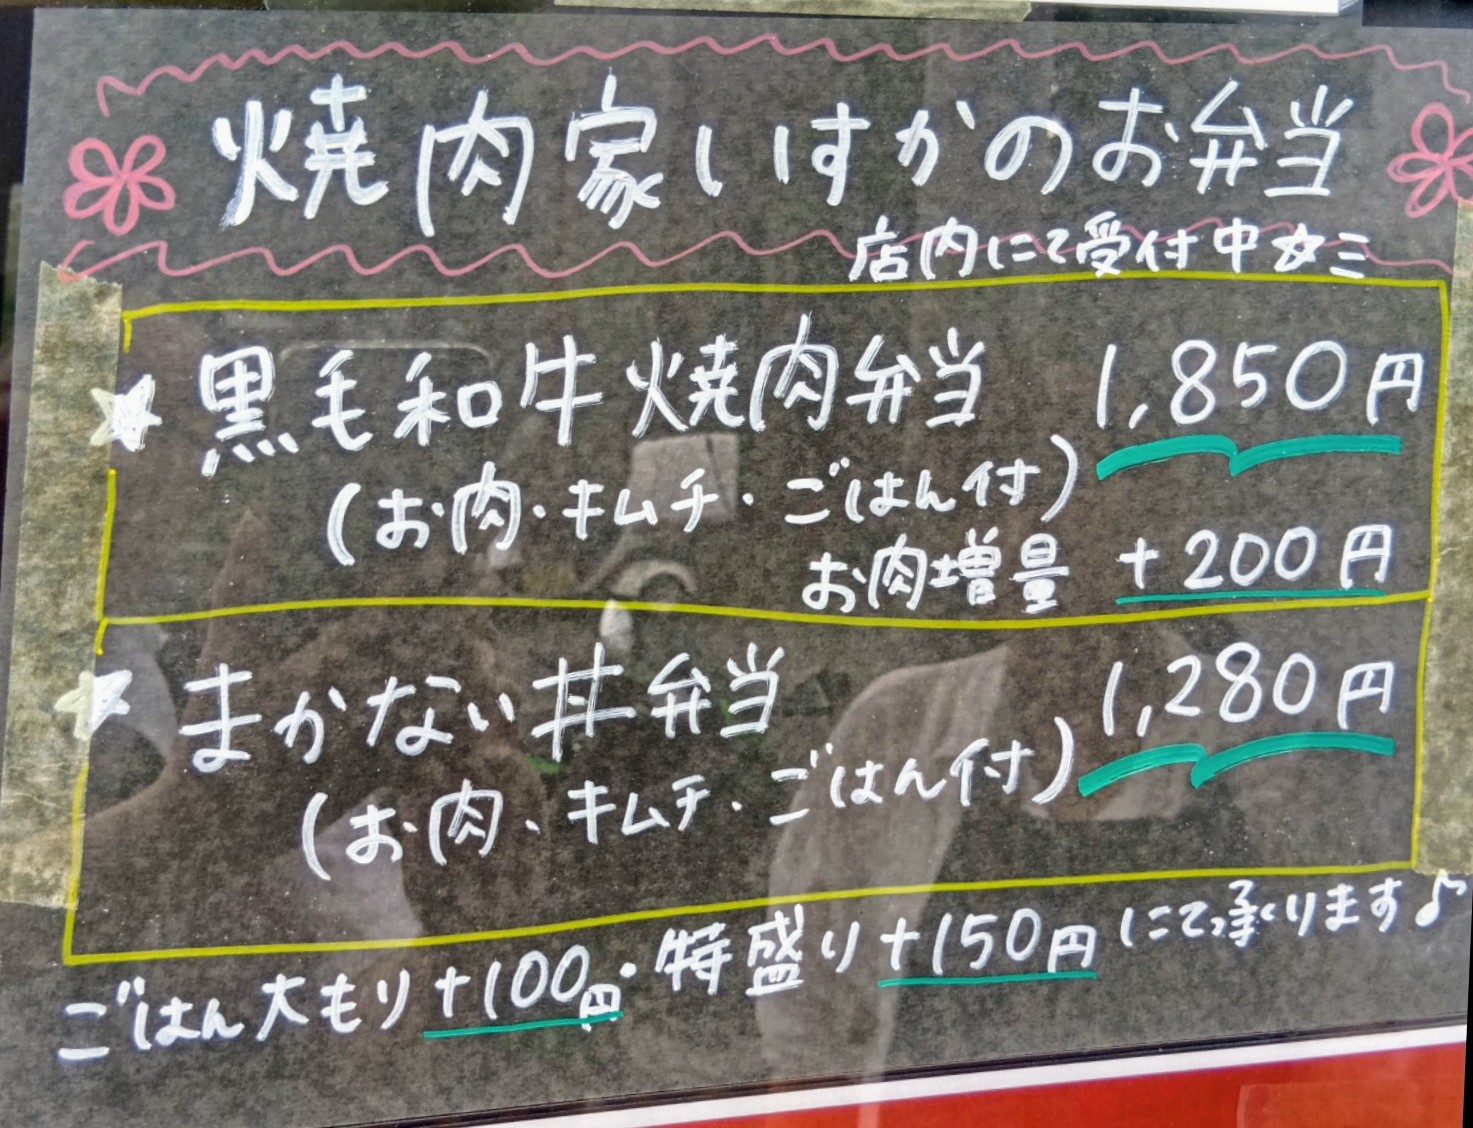 焼肉家いすかのお弁当
店内にて受付中☆ミ
★ 黒毛和牛焼肉弁当 1,850円
(お肉・キムチ・ごはん付)
お肉増量 +200円
★ まかない丼弁当 1,280円
(お肉、キムチ・ごはん付)
ごはん大もり+100円・特盛り+150円にて承ります♪